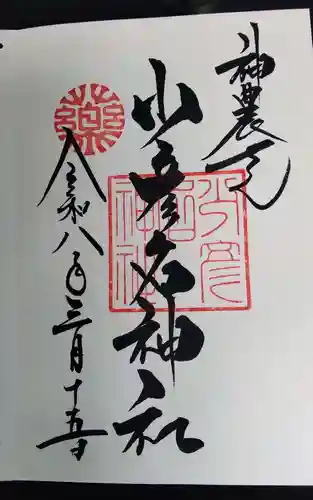 神農さん
少彦名神社
令和八年三月十五日
薬
少彦名神社